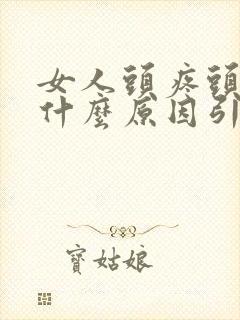 女人頭疼頭
什麼原因引
寶姑娘